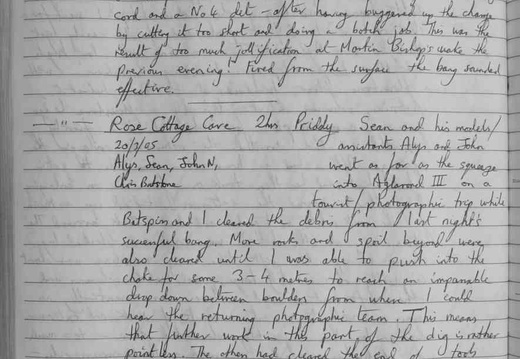 cord and a No 4 det - after having buggered up the charge
by cutting it too short and doing a botch job. This was the
result of too much jollification at Martin Bishop's wake the
previous evening! Fired from the surface the bang sounded
effective.
— " — Rose Cottage Cave 2hrs Priddy Sean and his models/
20/2/05 assistants Alys and John
Alys, Sean, John N, went as far as the squeeze
Chris Batstone into Aglarond III on a
tourist/photographic trip while
Batspiss and I cleared the debris from last night's
successful bang. More rocks and spoil beyond were
also cleared until I was able to push into the
choke for some 3-4 metres to reach an impassable
drop down between boulders from where I could
hear the returning photographic team. This means
that further work in this part of the dig is rather
pointless. The others had cleared the end of tools